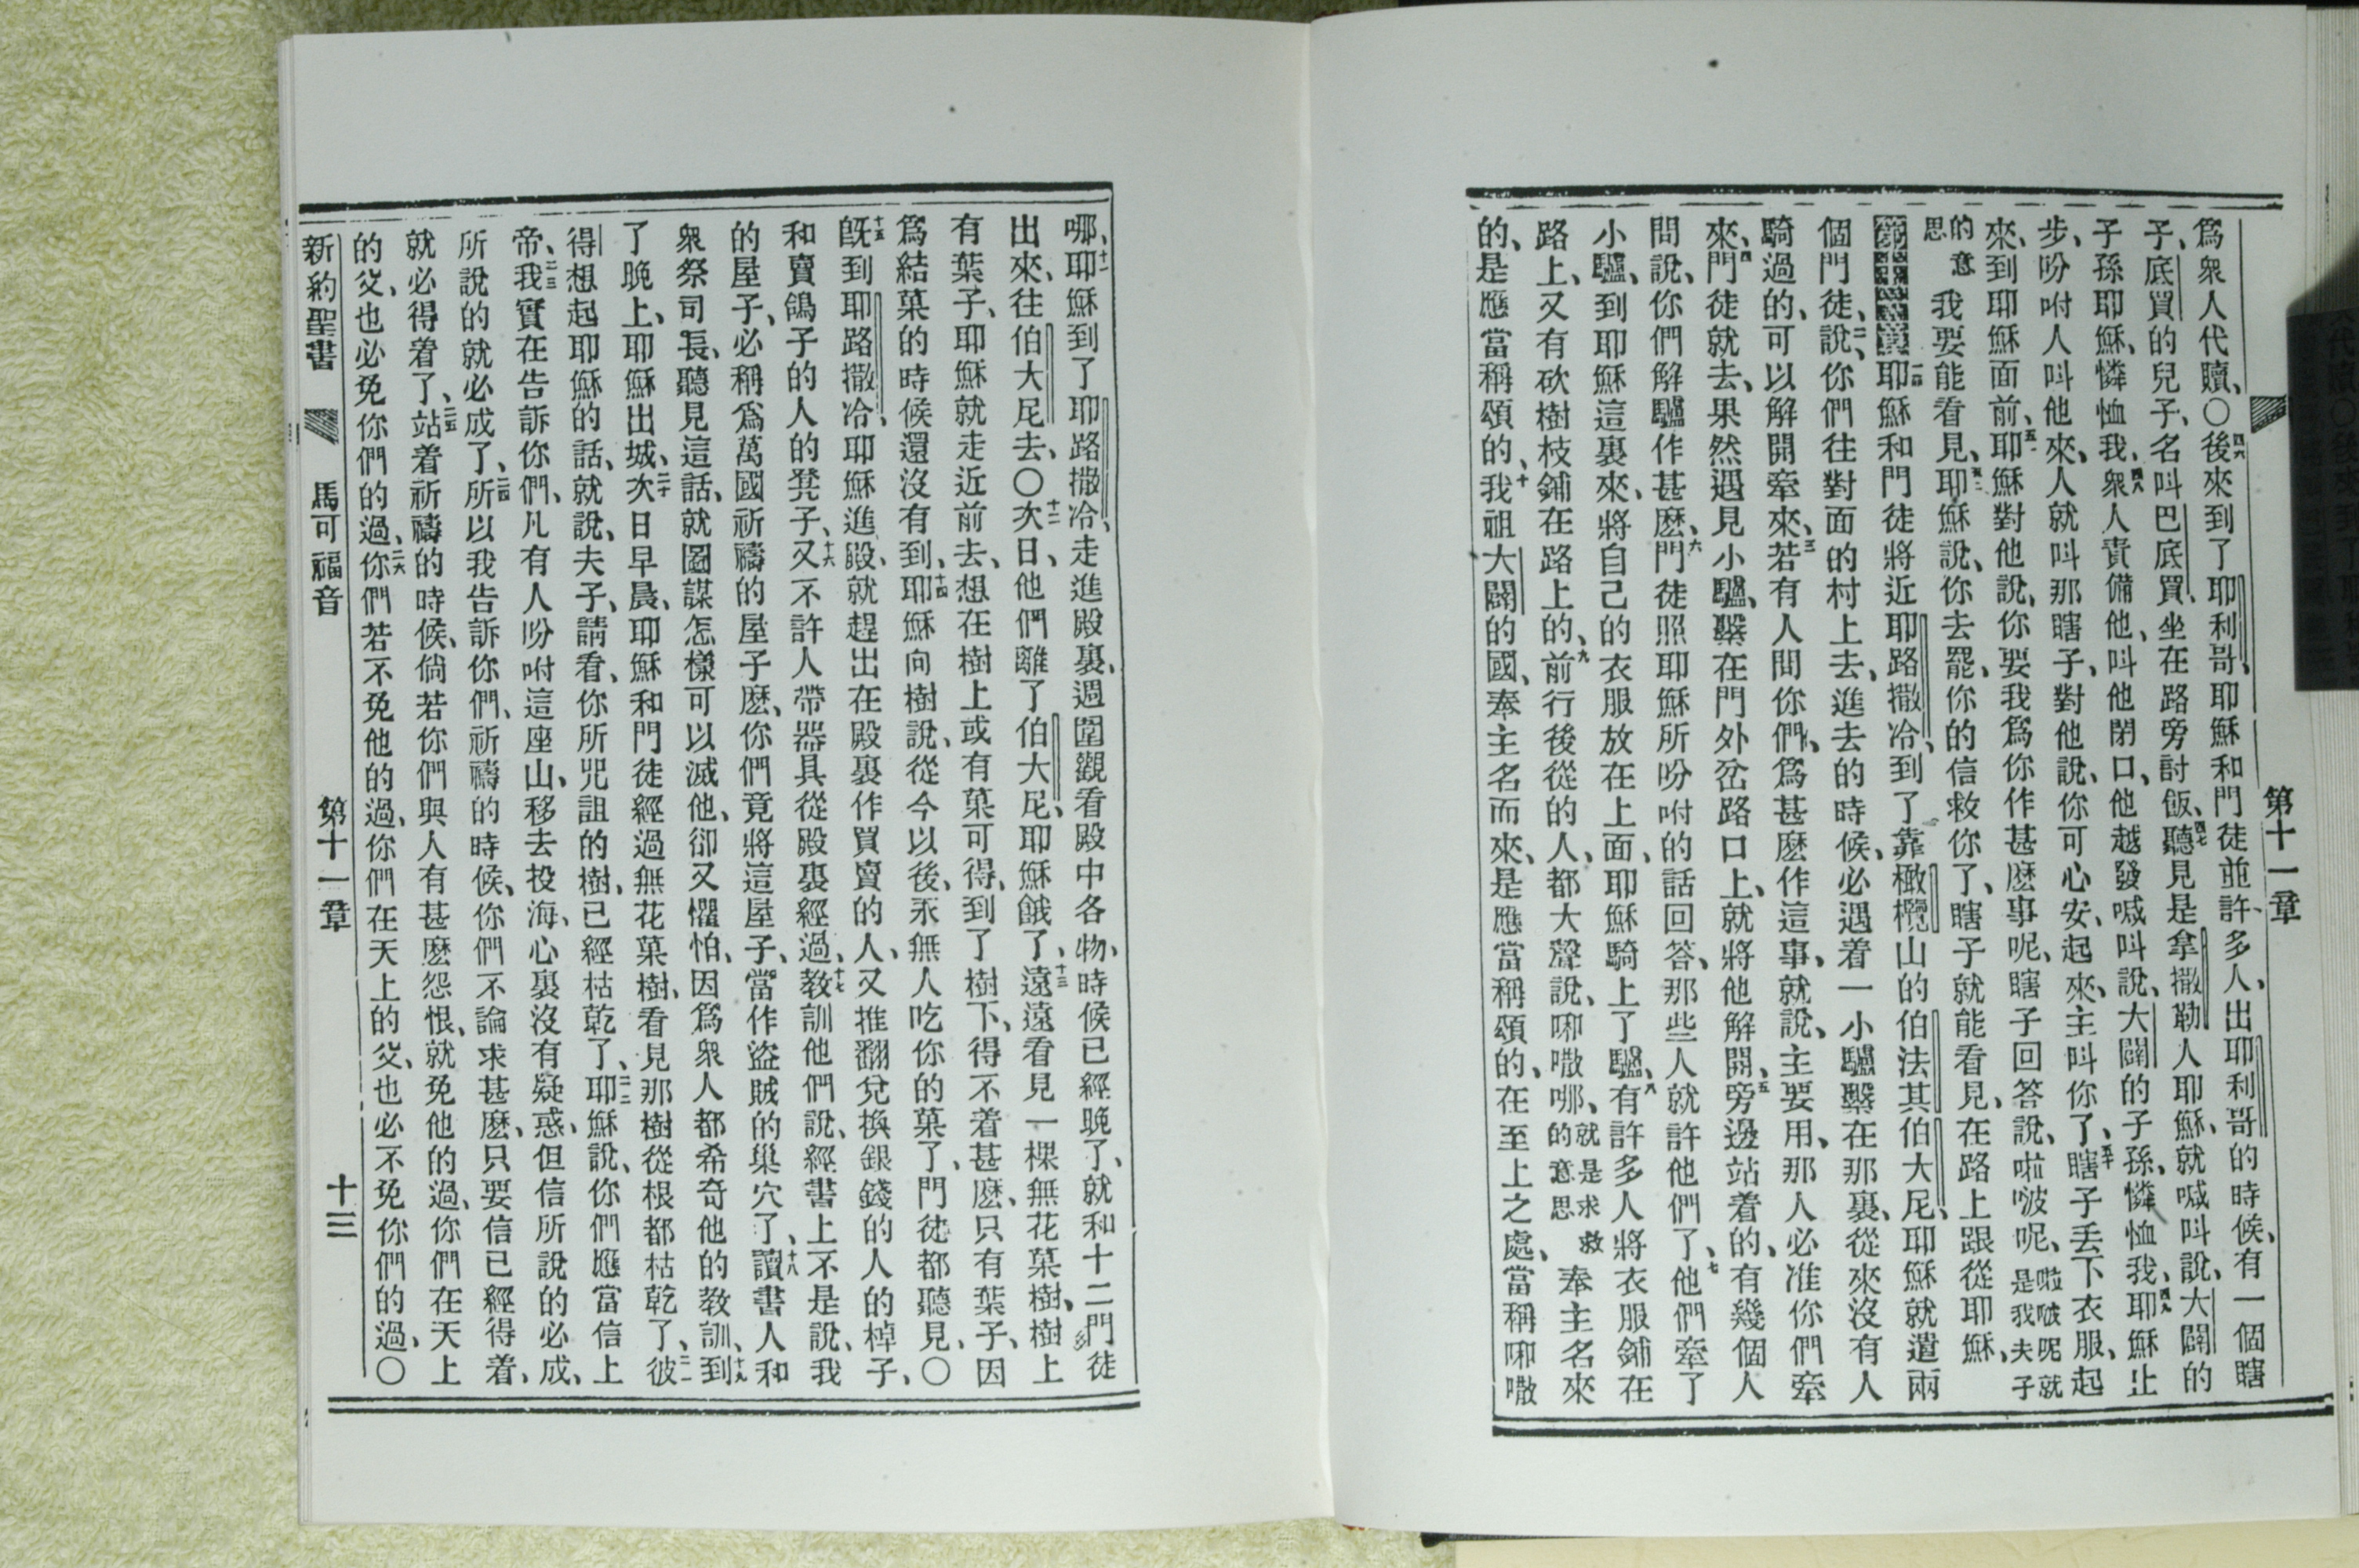 第十一章
爲衆人代贖、〇四六後來到了耶利哥、耶穌和門徒並許多人、出耶利哥的時候、有一個瞎
子、底買的兒子、名叫巴底買、坐在路旁討飯、四七聽見是拿撒勒人耶穌、就喊叫說、大闢的
子孫耶穌、憐恤我、四八衆人責備他、叫他閉口、他越發喊叫說、大闢的子孫、憐恤我、四九耶穌止
步、吩咐人叫他來、人就叫那瞎子、對他說、你可心安、起來、主叫你了、五十瞎子丟下衣服、起
來、到耶穌面前、五一耶穌對他說、你要我爲你作甚麽事呢、瞎子回答說、啦啵呢、啦啵呢就是我夫子
的意思我要能看見、五二耶穌說、你去罷、你的信救你了、瞎子就能看見、在路上跟從耶穌、
第十一章一耶穌和門徒將近耶路撒冷、到了靠橄欖山的伯法其伯大尼、耶穌就遣兩
個門徒、二說、你們往對面的村上去、進去的時候、必遇着一小驢繫在那裏、從來沒有人
騎過的、可以解開牽來、三若有人問你們、爲甚麽作這事、就說、主要用、那人必准你們牽
來、四門徒就去、果然遇見小驢、繫在門外岔路口上、就將他解開、五旁邊站着的、有幾個人
問說、你們解驢作甚麽、六門徒照耶穌所吩咐的話回答、那些人就許他們了、七他們牽了
小驢、到耶穌這裏來、將自己的衣服放在上面、耶穌騎上了驢、八有許多人將衣服鋪在
路上、又有砍樹枝鋪在路上的、九前行後從的人、都大聲說、㖿㗣哪、就是求救的意思奉主名來
的、是應當稱頌的、十我祖大闢的國、奉主名而來、是應當稱頌的、在至上之處、當稱㖿㗣
哪、十一耶穌到了耶路撒冷、走進殿裏、週圍觀看殿中各物、時候已經晚了、就和十二門徒
出來、往伯大尼去、〇十二次日、他們離了伯大尼、耶穌餓了、十三遠遠看見一棵無花菓樹、樹上
有葉子、耶穌就走近前去、想在樹上或有菓可得、到了樹下、得不着甚麽、只有葉子、因
爲結菓的時候還沒有到、十四耶穌向樹說、從今以後、永無人吃你的菓了、門徒都聽見、〇
十五旣到耶路撒冷、耶穌進殿、就趕出在殿裏作買賣的人、又推翻兌換銀錢的人的棹子、
和賣鴿子的人的凳子、十六又不許人帶器具從殿裏經過、十七敎訓他們說、經書上不是說、我
的屋子、必稱爲萬國祈禱的屋子麽、你們竟將這屋子、當作盜賊的巢穴了、十八讀書人和
衆祭司長、聽見這話、就圖謀怎樣可以滅他、卻又懼怕、因爲衆人都希奇他的敎訓、十九到
了晚上、耶穌出城、二十次日早晨、耶穌和門徒經過無花菓樹、看見那樹從根都枯乾了、二一彼
得想起耶穌的話、就說、夫子、請看、你所咒詛的樹、已經枯乾了、二二耶穌說、你們應當信上
帝、二三我實在告訴你們、凡有人吩咐這座山、移去投海、心裏沒有疑惑、但信所說的必成、
所說的就必成了、二四所以我告訴你們、祈禱的時候、你們不論求甚麽、只要信已經得着、
就必得着了、二五站着祈禱的時候、倘若你們與人有甚麽怨恨、就免他的過、你們在天上
的父、也必免你們的過、二六你們若不免他的過、你們在天上的父、也必不免你們的過、〇
新約聖書 馬可福音 第十一章 十三